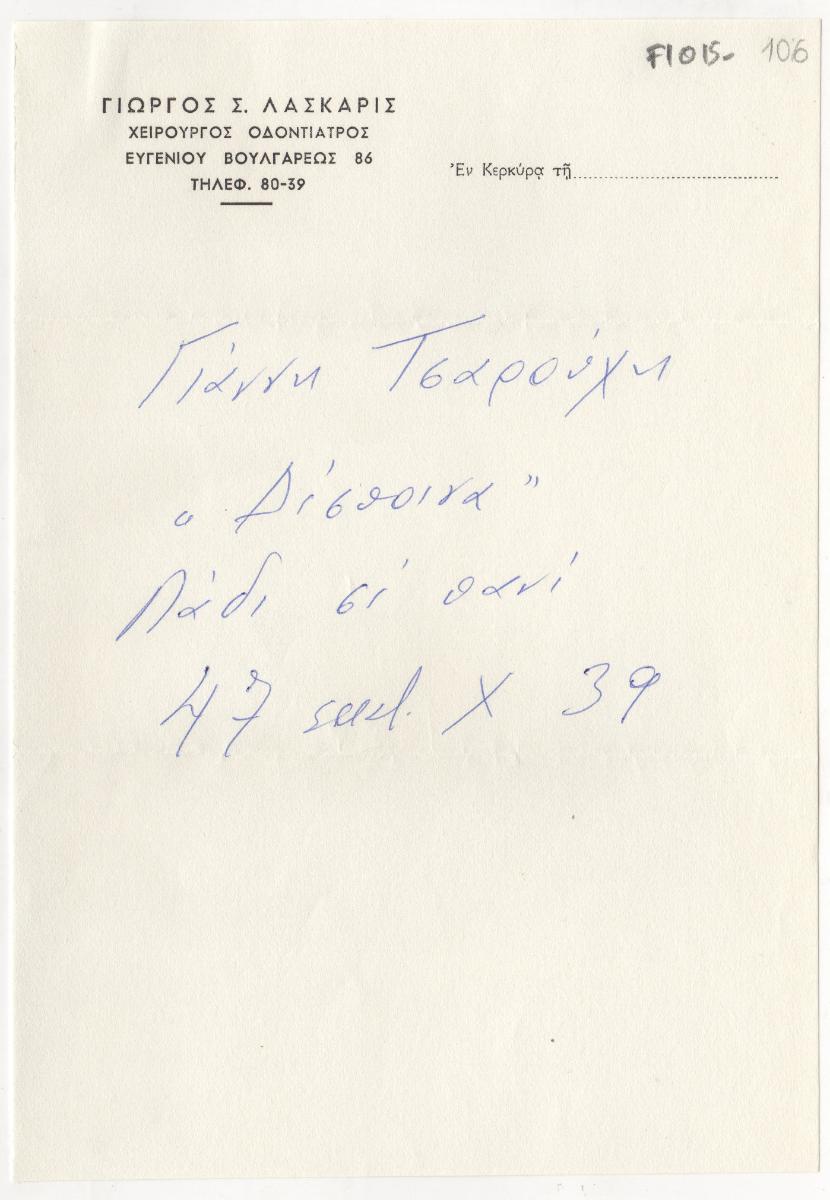 F1015- 106
ΓΙΩΡΓΟΣ Σ. ΛΑΣΚΑΡΙΣ
ΧΕΙΡΟΥΡΓΟΣ ΟΔΟΝΤΙΑΤΡΟΣ
ΕΥΓΕΝΙΟΥ ΒΟΥΛΓΑΡΕΩΣ 86
ΤΗΛΕΦ. 80-39
Ἐν Κερκύρᾳ τῇ
Γιάννη Τσαρούχη
„Δέσποινα”
Λάδι σέ πανί
47 εκατ. Χ 39